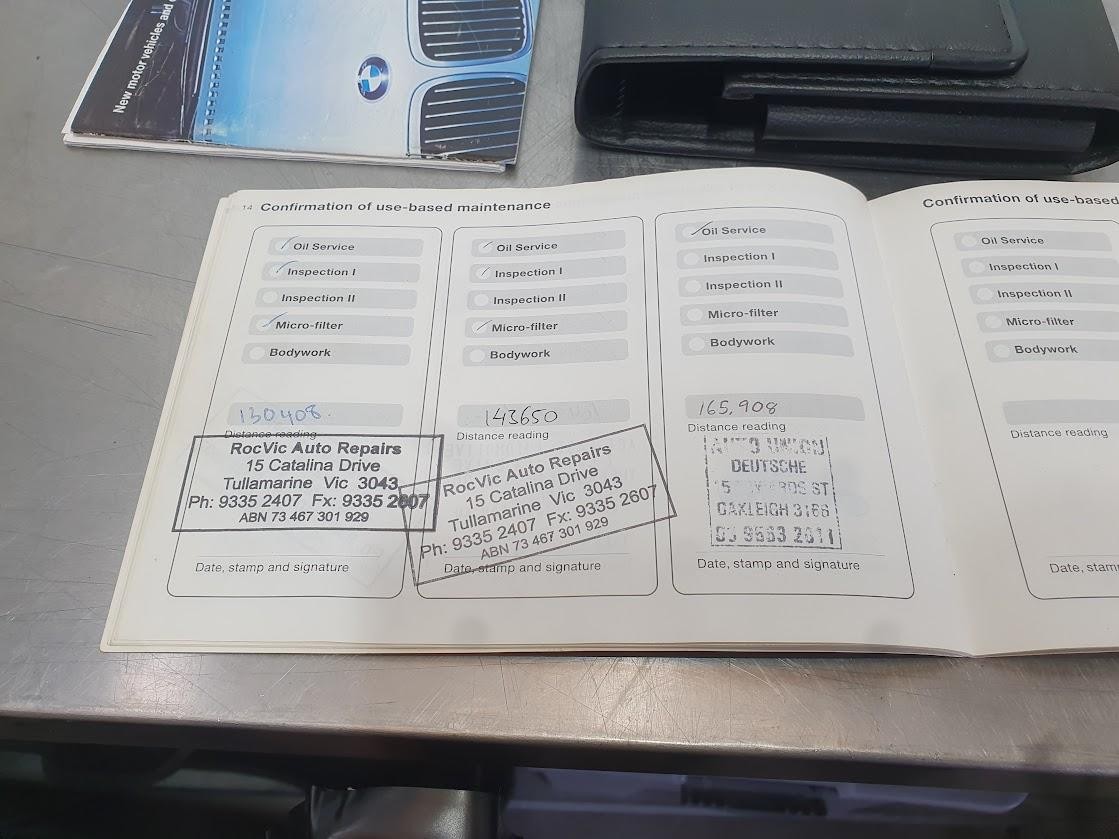 New motor vehicles and
14 Confirmation of use-based maintenance
Oil Service
Inspection I
Inspection II
Micro-filter
Bodywork
130408.
Distance reading
RocVic Auto Repairs
15 Catalina Drive
Tullamarine Vic 3043
Ph: 9335 2407 Fx: 9335 2607
ABN 73 467 301 929
Date, stamp and signature
Oil Service
Inspection I
Inspection II
Micro-filter
Bodywork
143650
Distance reading
RocVic Auto Repairs
15 Catalina Drive
Tullamarine Vic 3043
Ph: 9335 2407 Fx: 9335 2607
ABN 73 467 301 929
Date, stamp and signature
Oil Service
Inspection I
Inspection II
Micro-filter
Bodywork
165,908
Distance reading
AUTO UNION
DEUTSCHE
ST
OAKLEIGH 3166
Date, stamp and signature
Confirmation of use-based
Oil Service
Inspection I
Inspection II
Micro-filter
Bodywork
Distance reading
Date, stam